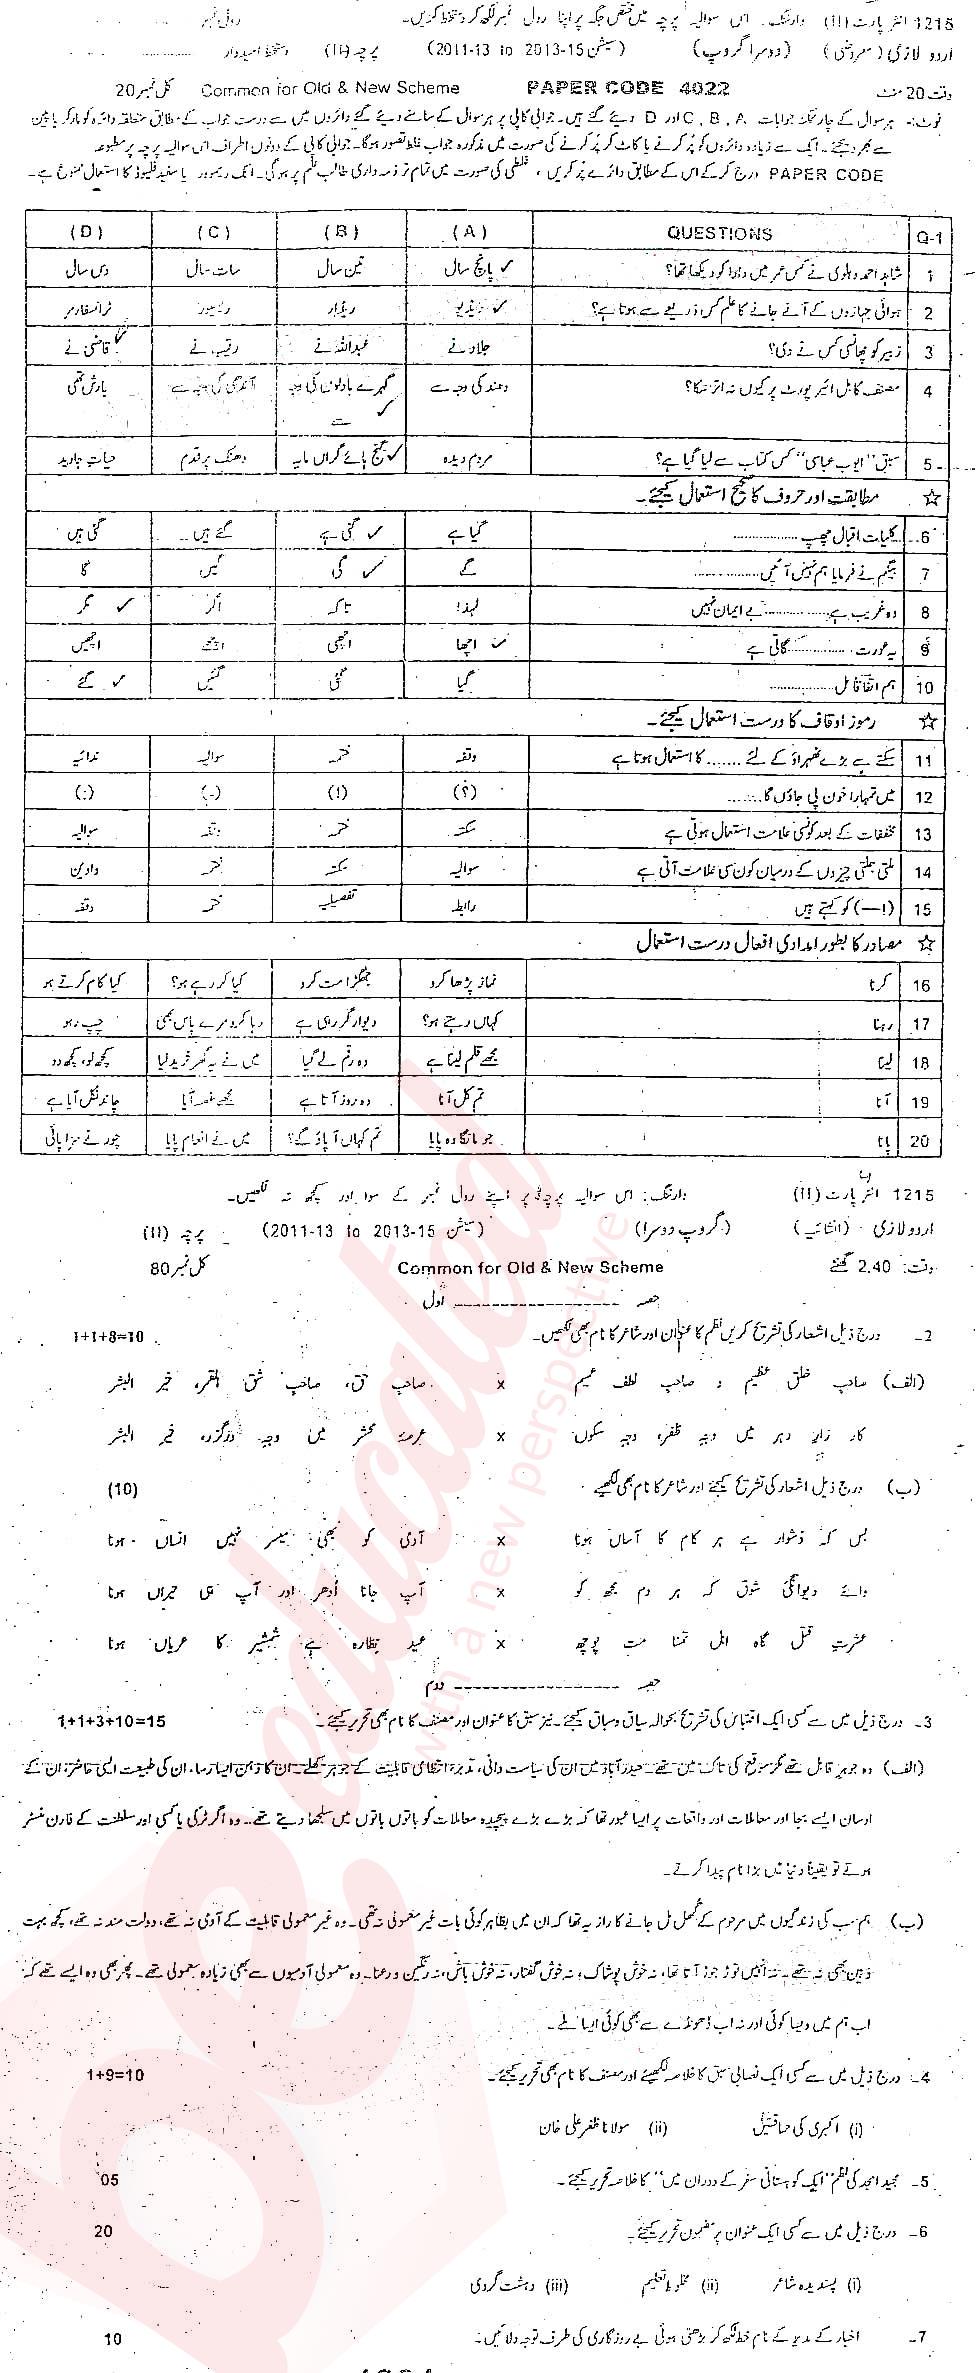 1215 انٹر پارٹ (II) وارننگ۔ اس سوالیہ پرچہ میں مختص جگہ پر اپنا رول نمبر لکھ کر دستخط کریں۔ رولنمبر
اردو لازمی (معروضی) (دوسرا گروپ) (سیشن 15-2013 to 13-2011) پرچہ (II) دستخط امیدوار
وقت 20 منٹ PAPER CODE 4022 Common for Old & New Scheme کل نمبر 20
نوٹ:۔ ہر سوال کے چار ممکنہ جوابات A, B, C اور D دیئے گئے ہیں۔ جوابی کاپی پر ہر سوال کے سامنے دیئے گئے دائروں میں سے درست جواب کے مطابق متعلقہ دائرہ کو مارکر یا پین
سے بھر دیجئے۔ ایک سے زیادہ دائروں کو پُر کرنے یا کاٹ کر پُر کرنے کی صورت میں مذکورہ جواب غلط تصور ہوگا۔ جوابی کاپی کے دونوں اطراف اس سوالیہ پرچہ پر مطبوعہ
PAPER CODE درج کر کے اس کے مطابق دائرے پُر کریں، غلطی کی صورت میں تمام تر ذمہ داری طالب علم پر ہوگی۔ انک ریموور یا سفید فلیوڈ کا استعمال ممنوع ہے۔
Q-1 QUESTIONS (A) (B) (C) (D)
1 شاہد احمد دہلوی نے کس عمر میں دادا کو دیکھا تھا؟ پانچ سال ✓ تین سال سات سال دس سال
2 ہوائی جہازوں کے آنے جانے کا علم کس ذریعے سے ہوتا ہے؟ ریڈیو ✓ ریڈار ٹرانسفارمر
3 زبیر کو پھانسی کس نے دی؟ جلاد نے عبداللہ نے رقیب نے قاضی نے ✓
4 مصنف کابل ائیر پورٹ پر کیوں نہ اتر سکا؟ دھند کی وجہ سے گہرے بادلوں کی وجہ سے ✓ آندھی کی وجہ سے بارش تھی
5 سبق "ایوب عباسی" کس کتاب سے لیا گیا ہے؟ مردم دیدہ گنج ہائے گراں مایہ ✓ دھنک پر قدم حیات جاوید
☆ مطابقت اور حروف کا صحیح استعمال کیجئے۔
6 کلیات اقبال چھپ ............... گیا ہے گئی ہے ✓ گئے ہیں گئی ہیں
7 بیگم نے فرمایا ہم نہیں آئیں ............... گے گی ✓ گیں گا
8 وہ غریب ہے ............... بے ایمان نہیں لہذا تاکہ اگر مگر ✓
9 یہ عورت ............... گاتی ہے اچھا ✓ اچھی اچھے اچھیں
10 ہم اتفاقاً مل ............... گیا گئی گئیں گئے ✓
☆ رموز اوقاف کا درست استعمال کیجئے۔
11 سکتے سے بڑے ٹھہراؤ کے لئے ....... کا استعمال ہوتا ہے وقفہ ختمہ سوالیہ ندائیہ
12 میں تمہارا خون پی جاؤں گا...... (؟) (!) (-) (:)
13 مخففات کے بعد کونسی علامت استعمال ہوتی ہے سکتہ ختمہ وقفہ سوالیہ
14 ملتی جلتی چیزوں کے درمیان کون سی علامت آتی ہے سوالیہ سکتہ ختمہ واوین
15 (!—) کو کہتے ہیں رابطہ تفصیلیہ ختمہ وقفہ
☆ مصادر کا بطور امدادی افعال درست استعمال
16 کرنا نماز پڑھا کرو جھگڑا مت کرو کیا کر رہے ہو؟ کیا کام کرتے ہو
17 رہنا کہاں رہتے ہو؟ دیوار گر رہی ہے رہا کرو مرے پاس بھی چپ رہو
18 لینا مجھے قلم لینا ہے وہ رقم لے گیا میں نے یہ گھر خرید لیا کچھ لو، کچھ دو
19 آنا تم کل آنا وہ روز آتا ہے مجھے غصہ آیا چاند نکل آیا ہے
20 پانا جو مانگا وہ پایا تم کہاں آ پاؤ گے؟ میں نے انعام پایا چور نے سزا پائی
1215 انٹر پارٹ (II) وارننگ: اس سوالیہ پرچہ پر اپنے رول نمبر کے سوا اور کچھ نہ لکھیں۔
اردو لازمی (انشائیہ) (گروپ دوسرا) (سیشن 15-2013 to 13-2011) پرچہ (II)
وقت: 2.40 گھنٹے Common for Old & New Scheme کل نمبر 80
حصہ ------------------- اول
2۔ درج ذیل اشعار کی تشریح کریں نظم کا عنوان اور شاعر کا نام بھی لکھیں۔ 1+1+8=10
(الف) صاحب خلق عظیم و صاحب لطف عمیم x صاحب حق، صاحب شق القمر، خیر البشر
کار زار دہر میں وجہ ظفر، وجہ سکوں x عرصۂ محشر میں وجہ درگزر، خیر البشر
(ب) درج ذیل اشعار کی تشریح کیجئے اور شاعر کا نام بھی لکھیے (10)
بس کہ دشوار ہے ہر کام کا آساں ہونا x آدمی کو بھی میسر نہیں انساں ہونا
وائے دیوانگیٔ شوق کہ ہر دم مجھ کو x آپ جانا اُدھر اور آپ ہی حیراں ہونا
عشرت قتل گہ اہل تمنا مت پوچھ x عید نظارہ ہے شمشیر کا عریاں ہونا
حصہ ------------------- دوم
3۔ درج ذیل میں سے کسی ایک اقتباس کی تشریح بحوالہ سیاق و سباق کیجئے۔ نیز سبق کا عنوان اور مصنف کا نام بھی تحریر کیجئے۔ 1+1+3+10=15
(الف) وہ جوہر قابل تھے مگر موقع کی تاک میں تھے۔ حیدر آباد میں ان کی سیاست دانی، تدبر، انتظامی قابلیت کے جوہر کھلے۔ ان کا ذہن ایسا رسا، ان کی طبیعت ایسی حاضر، ان کے
اوسان ایسے بجا اور معاملات اور واقعات پر ایسا عبور تھا کہ بڑے بڑے پیچیدہ معاملات کو باتوں باتوں میں سلجھا دیتے تھے۔ وہ اگر ٹرکی یا کسی اور سلطنت کے فارن منسٹر
ہوتے تو یقیناً دنیا میں بڑا نام پیدا کرتے۔
(ب) ہم سب کی زندگیوں میں مرحوم کے گھل مل جانے کا راز یہ تھا کہ ان میں بظاہر کوئی بات غیر معمولی نہ تھی۔ وہ غیر معمولی قابلیت کے آدمی نہ تھے، دولت مند نہ تھے، کچھ بہت
ذہین بھی نہ تھے۔ نہ انہیں توڑ جوڑ آتا تھا، نہ خوش پوشاک، نہ خوش گفتار، نہ خوش باش، نہ رنگین و رعنا۔ وہ معمولی آدمیوں سے بھی زیادہ معمولی تھے۔ پھر بھی وہ ایسے تھے کہ
اب ہم میں ویسا کوئی اور نہ اب ڈھونڈے سے بھی کوئی ایسا ملے۔
4۔ درج ذیل میں سے کسی ایک نصابی سبق کا خلاصہ لکھیئے اور مصنف کا نام بھی تحریر کیجئے۔ 1+9=10
(i) اکبری کی حماقتیں (ii) مولانا ظفر علی خان
5۔ مجید امجد کی نظم "ایک کوہستانی سفر کے دوران میں" کا خلاصہ تحریر کیجئے۔ 05
6۔ درج ذیل میں سے کسی ایک عنوان پر مضمون تحریر کیجئے۔ 20
(i) پسندیدہ شاعر (ii) مخلوط تعلیم (iii) دہشت گردی
7۔ اخبار کے مدیر کے نام خط لکھ کر بڑھتی ہوئی بے روزگاری کی طرف توجہ دلائیں۔ 10
educated
with a new perspective